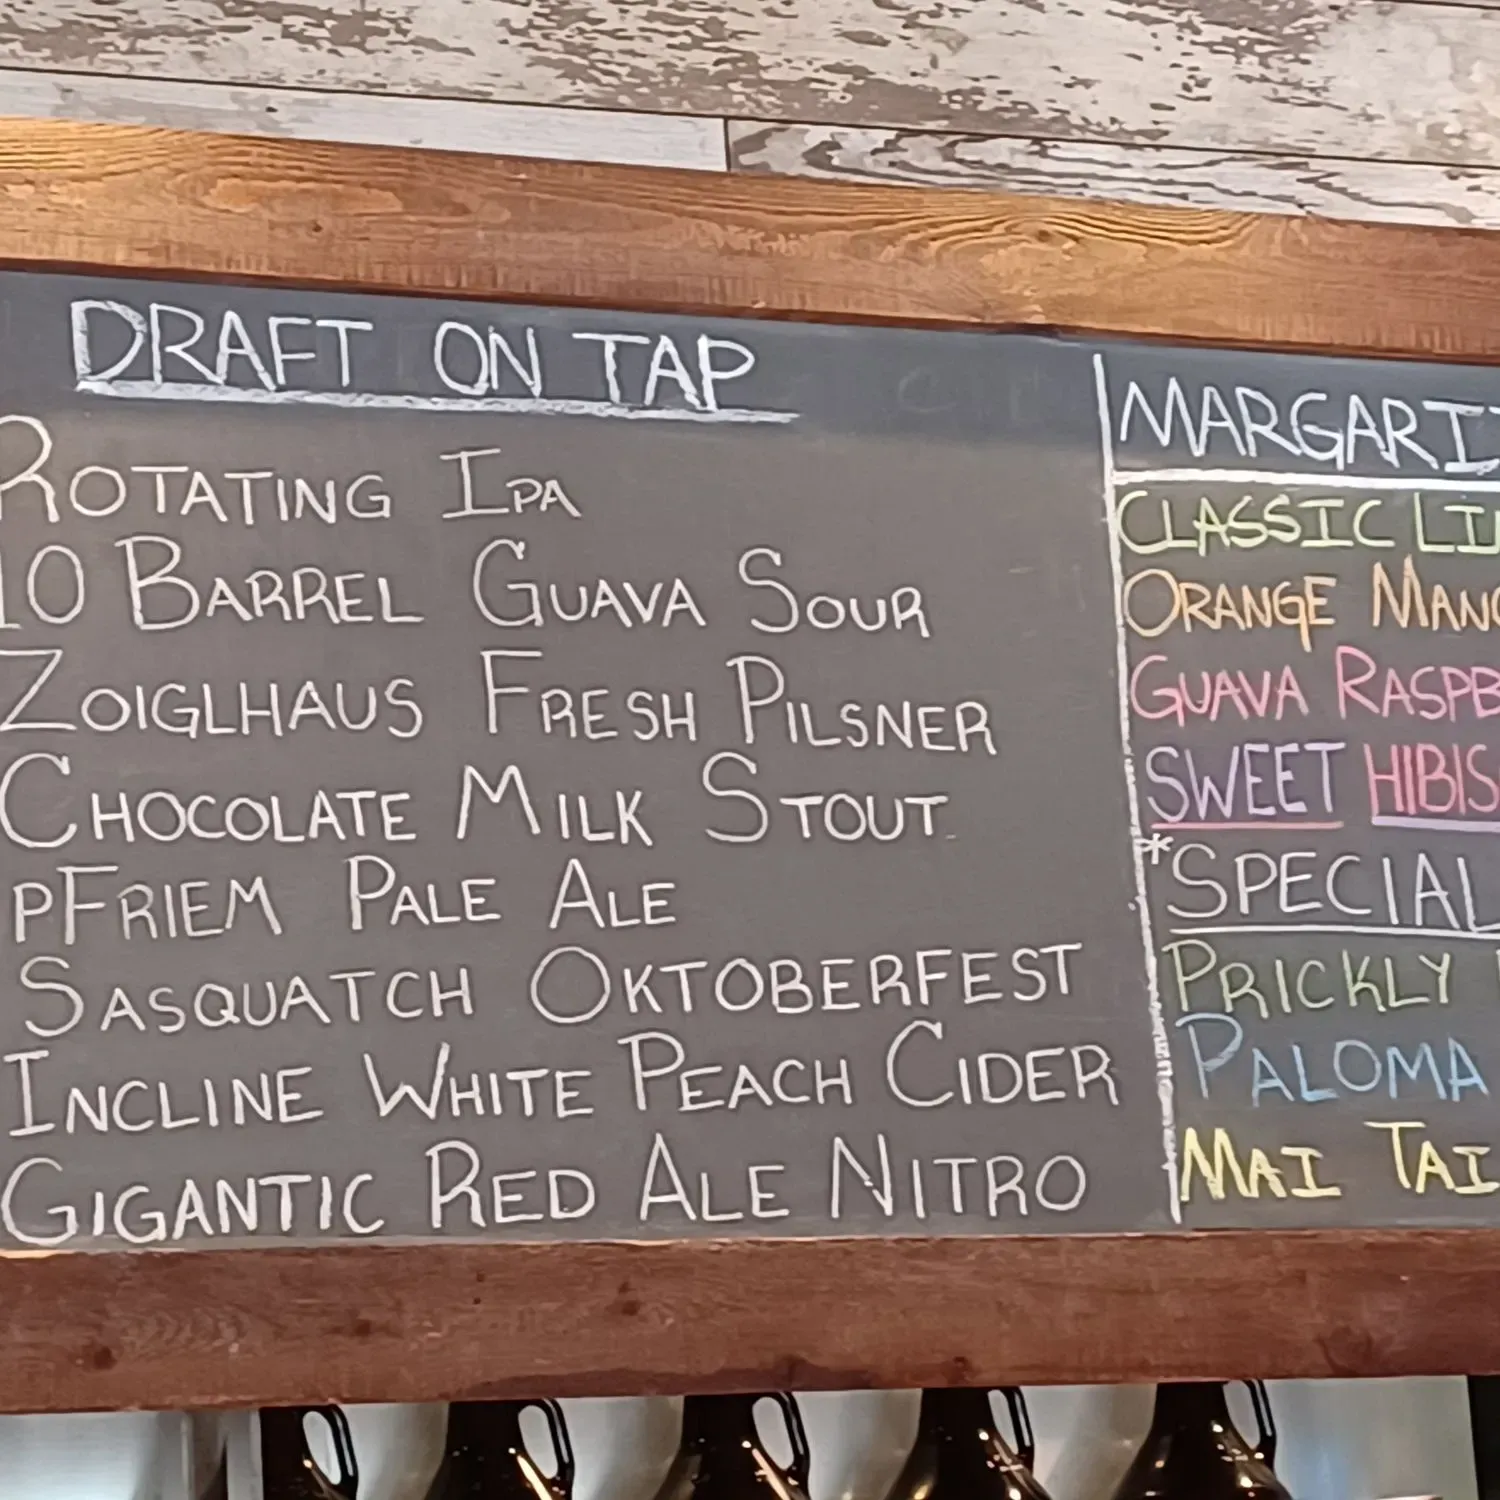 DRAFT ON TAP
ROTATING IPA
10 BARREL GUAVA SOUR
ZOIGLHAUS FRESH PILSNER
CHOCOLATE MILK STOUT
pFRIEM PALE ALE
SASQUATCH OKTOBERFEST
INCLINE WHITE PEACH CIDER
GIGANTIC RED ALE NITRO
CLASSIC
ORANGE
GUAVA
SWEET
*SPECIAL
PRICKLY
PALOMA
MAI TAI